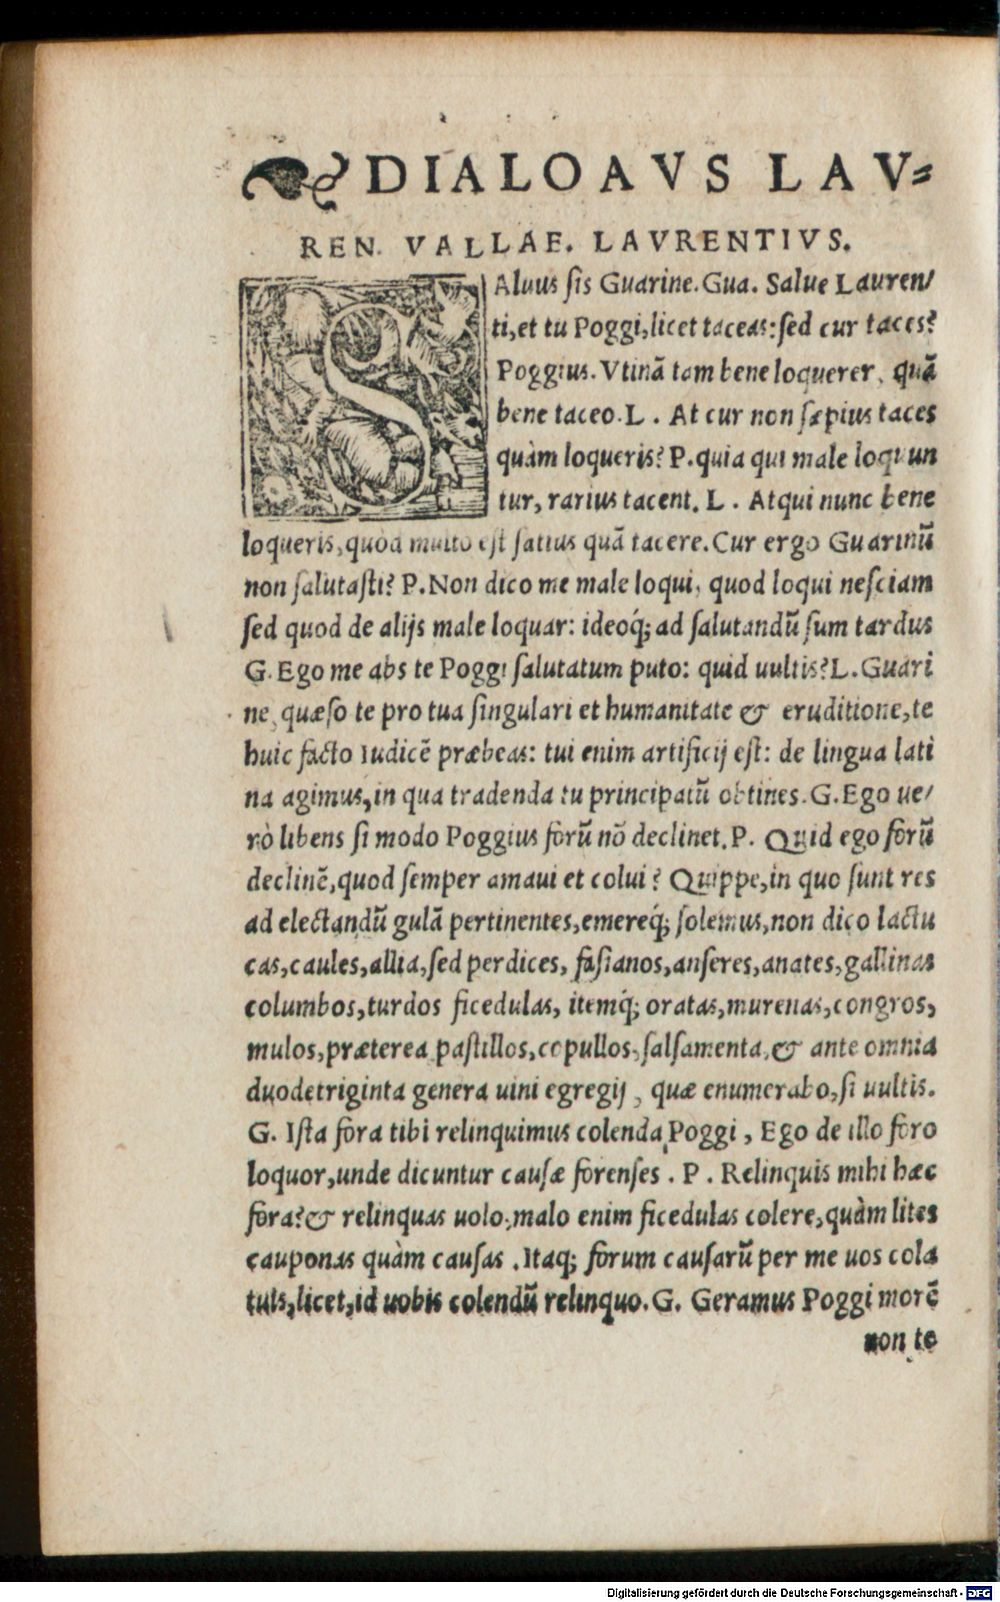 DIALOAVS LAV=
REN. VALLAE. LAVRENTIVS.
SAluus sis Guarine. Gua. Salue Lauren/
ti, et tu Poggi, licet taceas: sed cur taces?
Poggius. Vtinā tam bene loquerer, quā
bene taceo. L. At cur non sæpius taces
quàm loqueris? P. quia qui male loquun
tur, rarius tacent. L. Atqui nunc bene
loqueris, quod multo est satius quā tacere. Cur ergo Guarinū
non salutasti? P. Non dico me male loqui, quod loqui nesciam
sed quod de alijs male loquar: ideoq́; ad salutandū sum tardus
G. Ego me abs te Poggi salutatum puto: quid uultis? L. Guari
ne, quæso te pro tua singulari et humanitate & eruditione, te
huic facto Iudicē præbeas: tui enim artificij est: de lingua lati
na agimus, in qua tradenda tu principatū obtines. G. Ego ue/
rò libens si modo Poggius forū nō declinet. P. Quid ego forū
declinē, quod semper amaui et colui? Quippe, in quo sunt res
ad electandū gulā pertinentes, emereq́; solemus, non dico lactu
cas, caules, allia, sed perdices, fasianos, anseres, anates, gallinas
columbos, turdos ficedulas, itemq́; oratas, murenas, congros,
mulos, præterea pastillos, copullos, salsamenta, & ante omnia
duodetriginta genera uini egregij, quæ enumerabo, si uultis.
G. Ista fora tibi relinquimus colenda Poggi, Ego de illo foro
loquor, unde dicuntur causæ forenses. P. Relinquis mihi hæc
fora? & relinquas uolo, malo enim ficedulas colere, quàm lites
cauponas quàm causas. Itaq; forum causarū per me uos cola
tuis, licet, id uobis colendū relinquo. G. Geramus Poggi morē
non te
Digitalisierung gefördert durch die Deutsche Forschungsgemeinschaft - DFG